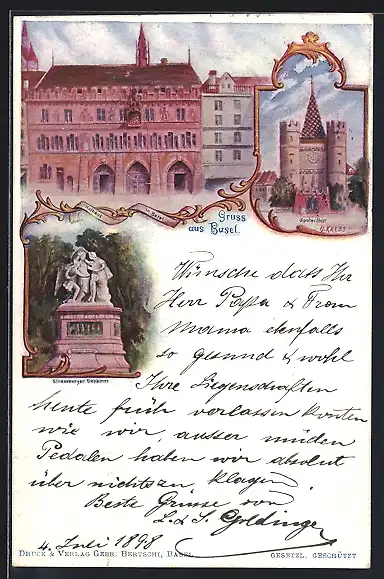 Rathaus in Basel
Gruss
aus Basel.
Spalenthor
Strassburger Denkmal
Wünsche dass Ihr
Herr Papa & Frau
Mama ebenfalls
so gesund & wohl
Ihre Liegenschaften
heute früh verlassen konnten
wie wir, ausser müden
Pedalen haben wir absolut
über nichts zu klagen
Beste Grüsse von
L. & S. Goldinger
4. Juli 1898
DRUCK & VERLAG GEBR. BERTSCHI, BASEL
GESETZL. GESCHÜTZT